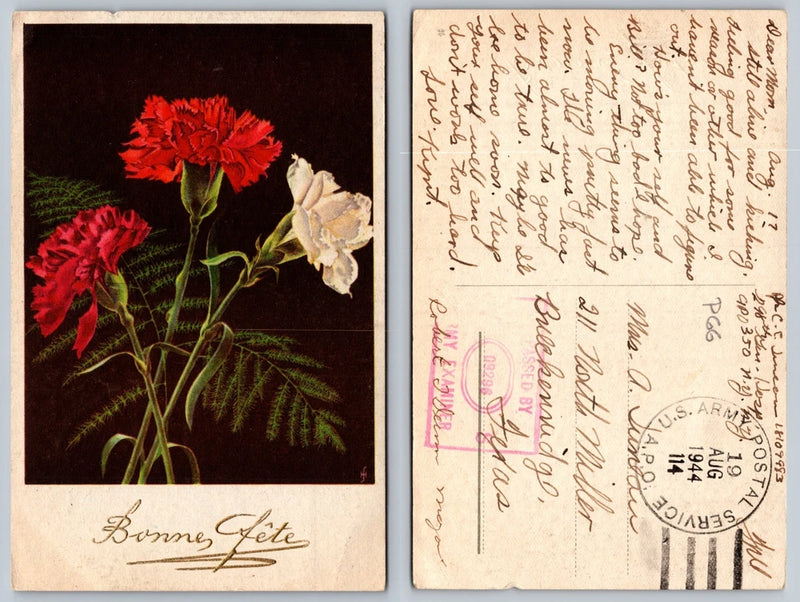 Bonne Fête
Aug. 17
Dear Mom,
Still alive and kicking,
feeling good for some
reason or other which I
haven't been able to figure
out.
How's your self and
Bill? Not too bad I hope.
Every thing seems to
be moving pretty fast
now. The news has
been almost to good
to be true. Maybe I'll
be home soon. Keep
your self well and
don't work too hard.
Love,
P66
18107983
Gen. Hosp.
APO 350 N.Y. N.Y.
Mrs. A.
211 North Miller
Breckenridge,
Texas
U.S. ARMY POSTAL SERVICE
A.P.O.
19
AUG
1944
114
PASSED BY
ARMY EXAMINER
Robert